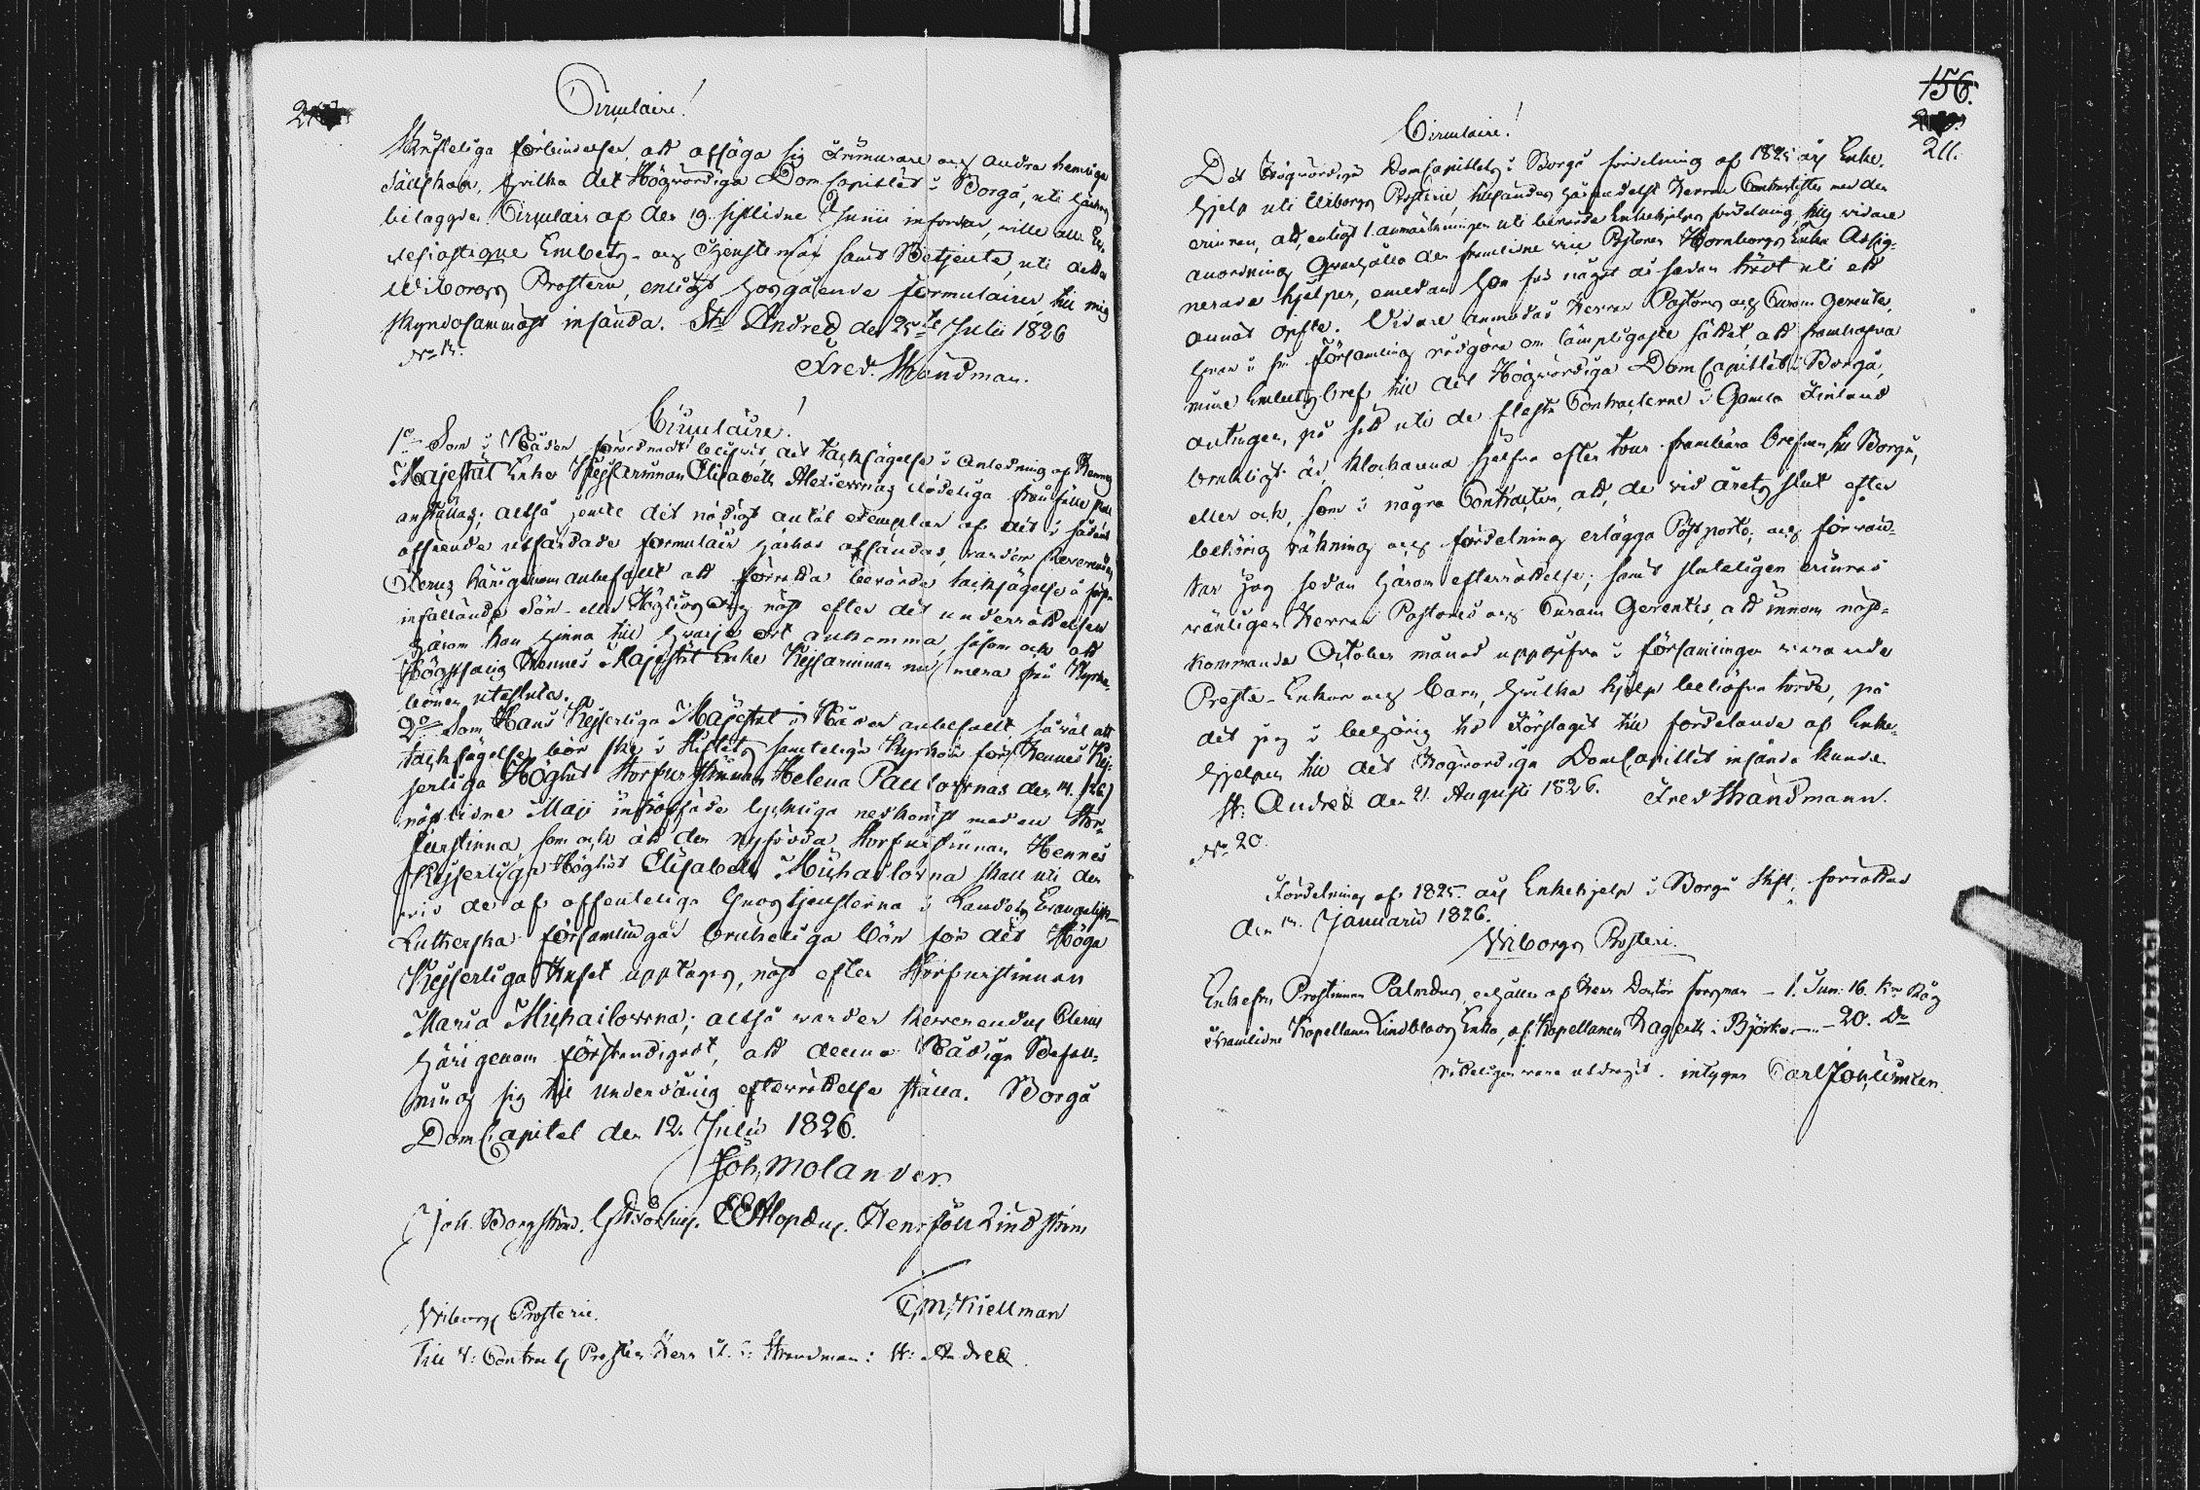 Circulaire!
Skrifteliga förbindelser, att afsäga sig Frimurare och andra hemliga
Sällskap, hvilka det Högvördiga DomCapitlet i Borgå, uti härhos
bilagde Circulair af den 19. sistlidne Junii infordrar, wille alla Ec-
clesiastique Embets- och Tjenstemän samt Betjente, uti detta
Wiborgs Prosteri, enligt hosgående formulairer, till mig
skyndsammast insända. St. Andreæ den 25te Julii 1826
Fred. Strandman.
Circulaire!
1o Som i Nåder förordnadt blifvit, det tacksägelse i anledning af Hennes
Majestät Enke Kejsarinnan Elisabeth Alexiewnas dödeliga frånfälle skall
anställas; altså jemte det nödigt antal exemplar af det i sådant
afseende utfärdade formulair härhos afsändas, warder Reverendus
Clerus härigenom anbefaldt att förrätta berörde tacksägelse å först
infallande Sön- eller Högtidsdag näst efter det underrättelsen
härom kan hinna till hvarje ort ankomma, såsom ock att
Högstsalig Hennes Majestät Enke Kejsarinnan nu mera från Kyrko-
bönen uteslutes.
2o Som Hans Kejserliga Majestät i Nåder anbefallt, så väl att
tacksägelse bör ske i Stiftets samteliga Kyrkor för Hennes Kej-
serliga Höghet Storfurstinnan Helena Paulownas den 14. (26)
nästlidne Maji inträffade lyckliga nedkomst med en Stor-
furstinna, som ock att den nyfödda Storfurstinnan Hennes
Kejserliga Höghet Elisabeth Michailowna skall uti den
wid de af offentliga Gudstjensterna i Landets Evangelisk-
Lutherska församlingar brukeliga bön för det Höga
Kejserliga Huset upptagas, näst efter Storfurstinnan
Maria Michailowna; altså warder Reverendus Clerus
härigenom förständigadt, att denna Nådiga Befall-
ning sig till underdånig efterrättelse ställa. Borgå
DomCapitel den 12. Julii 1826.
Joh. Molander.
Joh. Borgström. Henr Joh Lindström
C. M. Kiellman
Wiborgs Prosterie.
Till V: Contracts Prosten Herr Strandman: St: Andreæ.
156.
211.
Circulaire!
Det Högvördiga DomCapitlets i Borgå fördelning af 1825 års Enke-
hjelp uti Wiborgs Prosteri, tillsändes härmedelst Herrar Contractister med den
erinran, att, enligt 1. anmärkningen uti berörde Enkehjelps fördelning, till vidare
anordning qvarhålla den framlidne vice Pastoren Hornborgs Enka Assig-
nerade hjelpen, emedan hon för något år sedan trädt uti ett
annat gifte. Vidare anmodas Herrar Pastores och Curam Gerentes,
hvar i sin församling rådgöra om lämpligaste sättet, att framskaffa
mina Embetsbref till det Högvördiga DomCapitlet i Borgå,
antingen, på sätt uti de flesta Contracterne i Gamla Finland
brukligt är, klockarena sjelfva efter tour frambära brefven till Borgå,
eller ock, som i några Contracter, att, de vid årets slut efter
behörig räkning och fördelning erlägga Postporto; och förvän-
tar jag sedan härom efterrättelse; samt slutligen erinras
vänligen Herrar Pastores och Curam Gerentes, att innom näst-
kommande October månad uppgifva i församlingen varande
Preste-Enkor och Barn, hvilka hjelp behöfva torde, på
det jag i behörig tid Förslaget till fördelande af Enke-
hjelpen till det Högvördiga DomCapitlet insända kunde.
St: Andreæ den 21. Augusti 1826. Fred Strandmann.
No 20.
Fördelning af 1825. års Enkehjelp i Borgå Stift, förrättad
den Januarii 1826.
Wiborgs Prosteri.
Enkefru Prostinnan Palmdus, erhåller af Herr Doctor Forsman - 1. Tun: 16. Kr Råg
Framlidne Kapellanen Lindbloms Enka, af Kapellanen Kagerth i Björkö - 20. Do
Rikteligen vara utdragit, intygar Carl Joh: